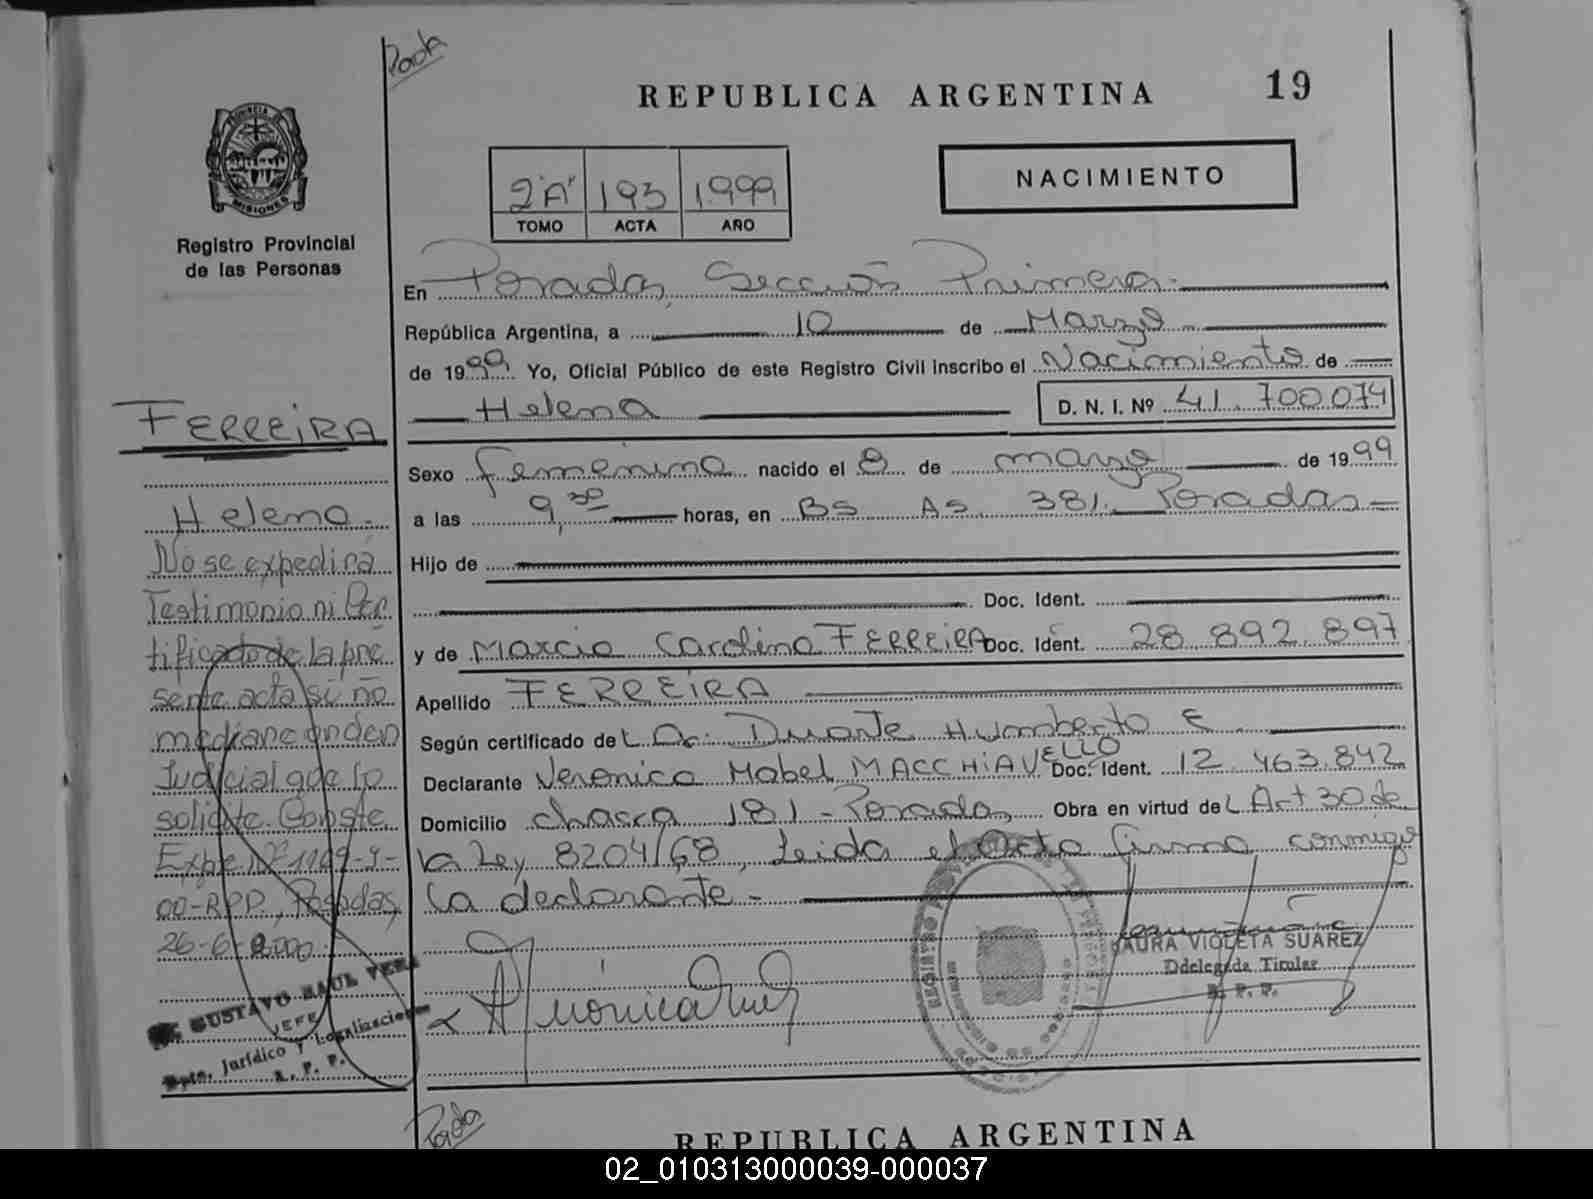 Pada
REPUBLICA ARGENTINA 19
PROVINCIA DE
MISIONES
Registro Provincial
de las Personas
2"A" 193 1999
TOMO ACTA AÑO
NACIMIENTO
En Posadas, Sección Primera.-
República Argentina, a 10 de Marzo
de 1999 Yo, Oficial Público de este Registro Civil inscribo el Nacimiento de
Helena D. N. I. Nº 41.700.074
Sexo femenino nacido el 8 de marzo de 1999
a las 9,30 horas, en BS AS. 381. Posadas -
Hijo de
Doc. Ident.
y de Marcia Carolina FERREIRA Doc. Ident. 28.892.897
Apellido FERREIRA
Según certificado del Dr. Duarte Humberto E
Declarante Veronica Mabel MACCHIAVELLO Doc. Ident. 12.463.842
Domicilio chacra 181 - Posadas, Obra en virtud del Art 30 de
la Ley 8204/68, Leida el Acta firma conmigo
la declarante -
LAURA VIOLETA SUAREZ
Ddelegada Titular
R. P. P.
FERREIRA
Helena.
No se expedirá
Testimonio ni Cer
tificado de la pre
sente acta si no
mediare orden
Judicial que lo
solicite. Conste.
Expte. Nº 1109-9-
00-RPP., Posadas,
26-6-2000.
GUSTAVO RAUL VERA
JEFE
Dpto. Jurídico y Legalizaciones
R. P. P.
Pada
REPUBLICA ARGENTINA
02_010313000039-000037